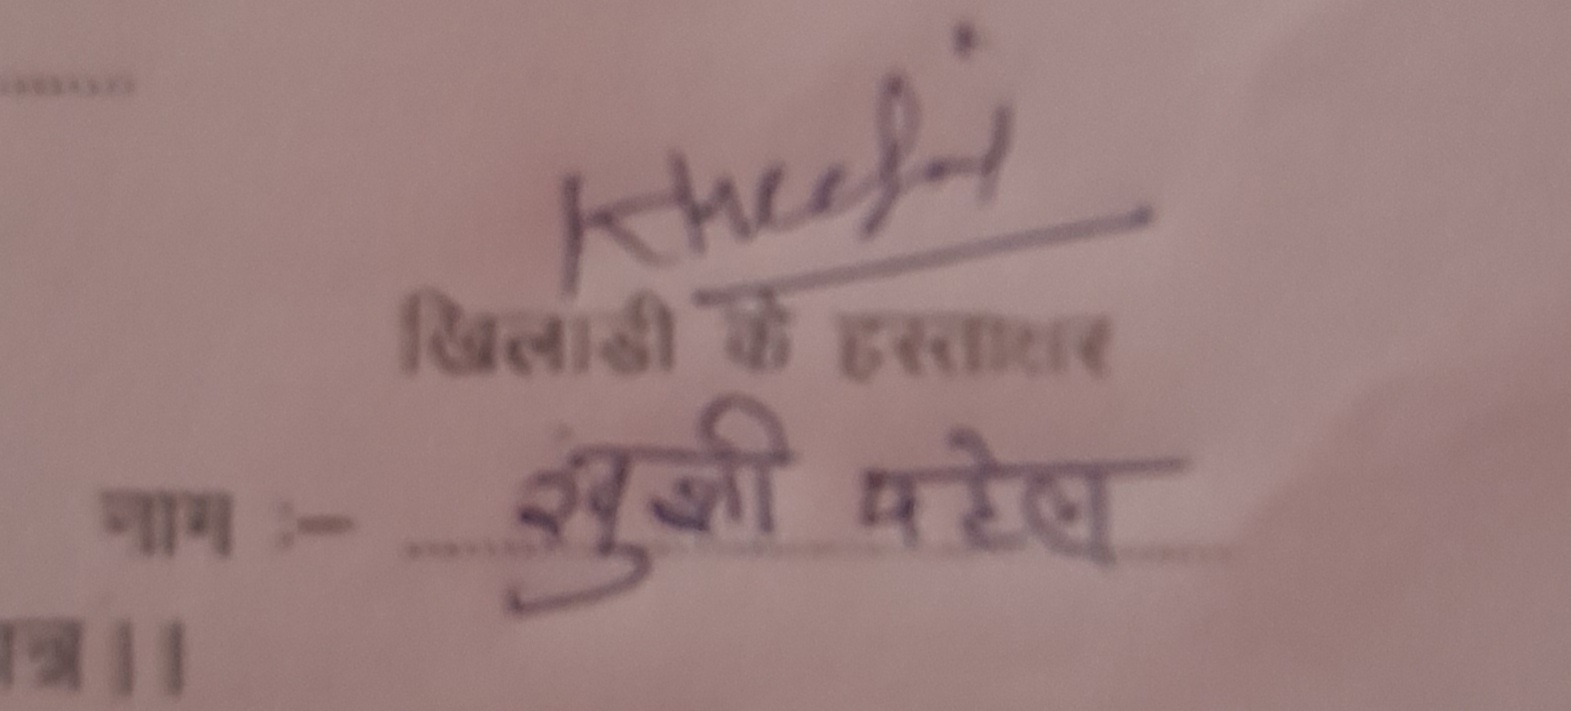 Khushi
खिलाडी के हस्ताक्षर
नाम :- खुशी पटेल
पत्र ||